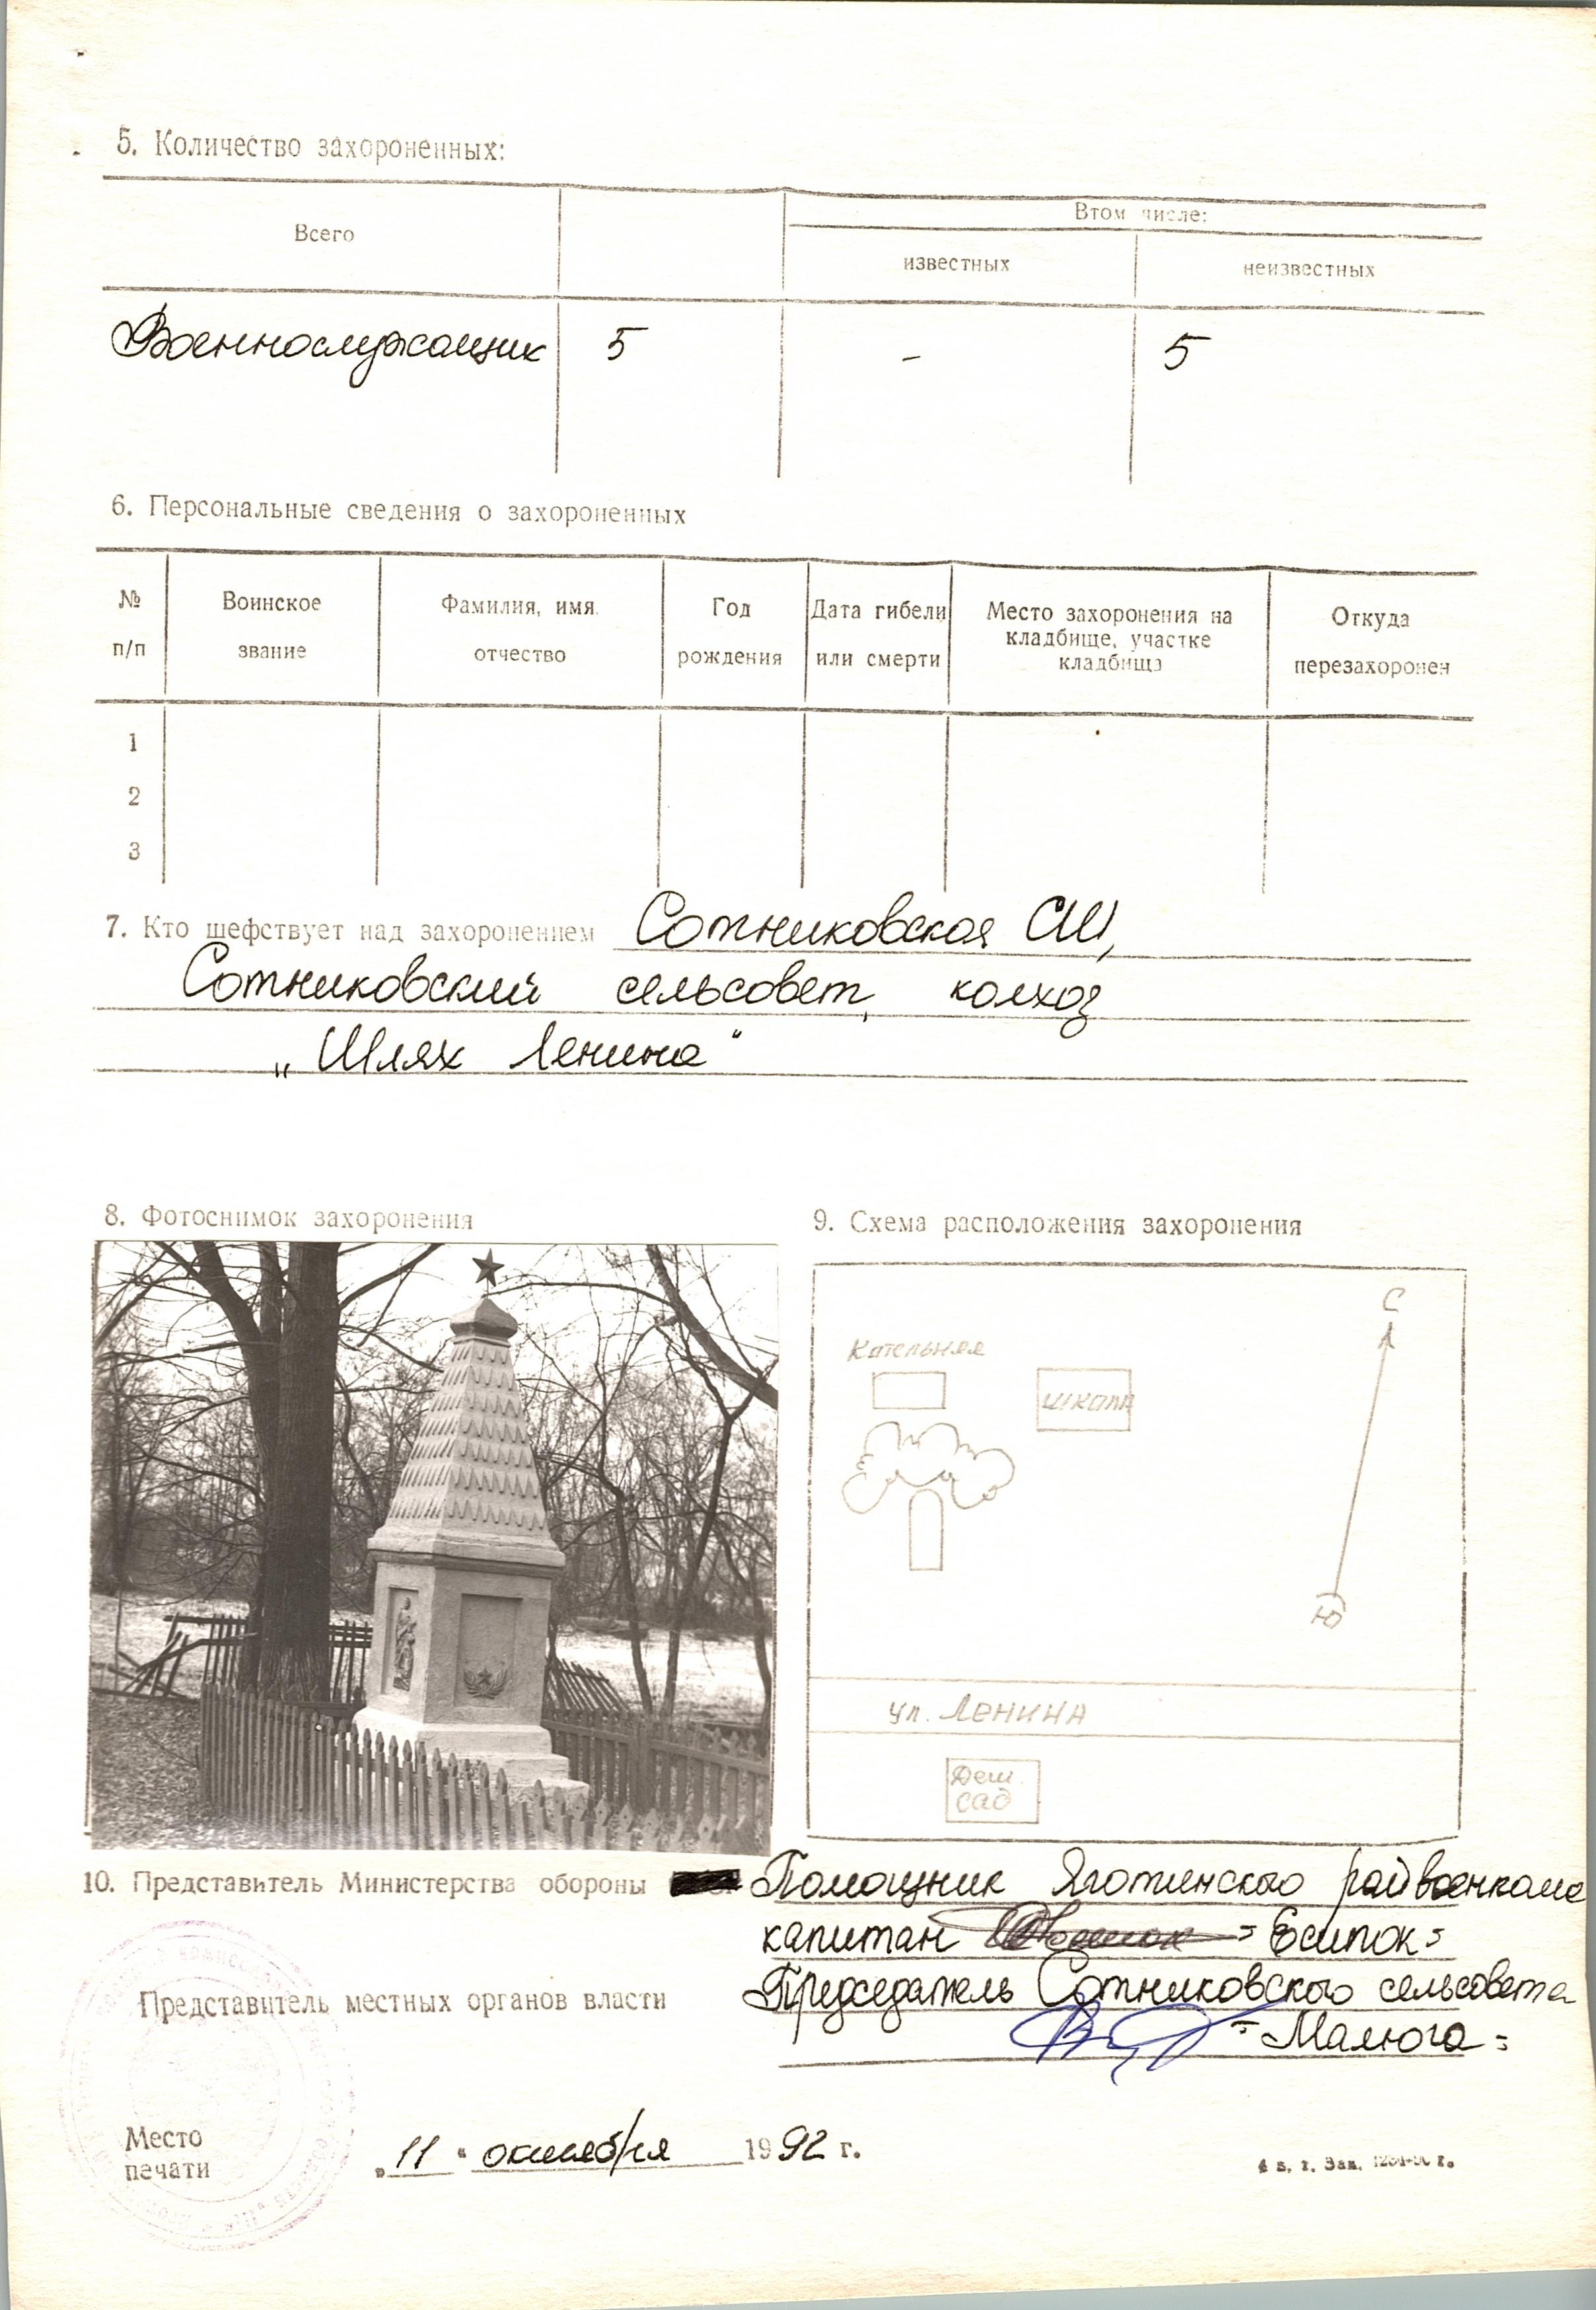 5. Количество захороненных:
Всего
Втом числе:
известных
неизвестных
Военнослужащих 5 - 5
6. Персональные сведения о захороненных
№ п/п
Воинское звание
Фамилия, имя, отчество
Год рождения
Дата гибели или смерти
Место захоронения на кладбище, участке кладбища
Откуда перезахоронен
1
2
3
7. Кто шефствует над захоронением Сотниковская СШ,
Сотниковский сельсовет, колхоз
„Шлях Ленина"
8. Фотоснимок захоронения
9. Схема расположения захоронения
С
Котельная
школа
Ю
ул. Ленина
Дет.
сад
10. Представитель Министерства обороны Помощник Яготинского райвоенкома
капитан = Есипок =
Представитель местных органов власти Председатель Сотниковского сельсовета
= Малюга =
Место
печати
„11" октября 1992 г.